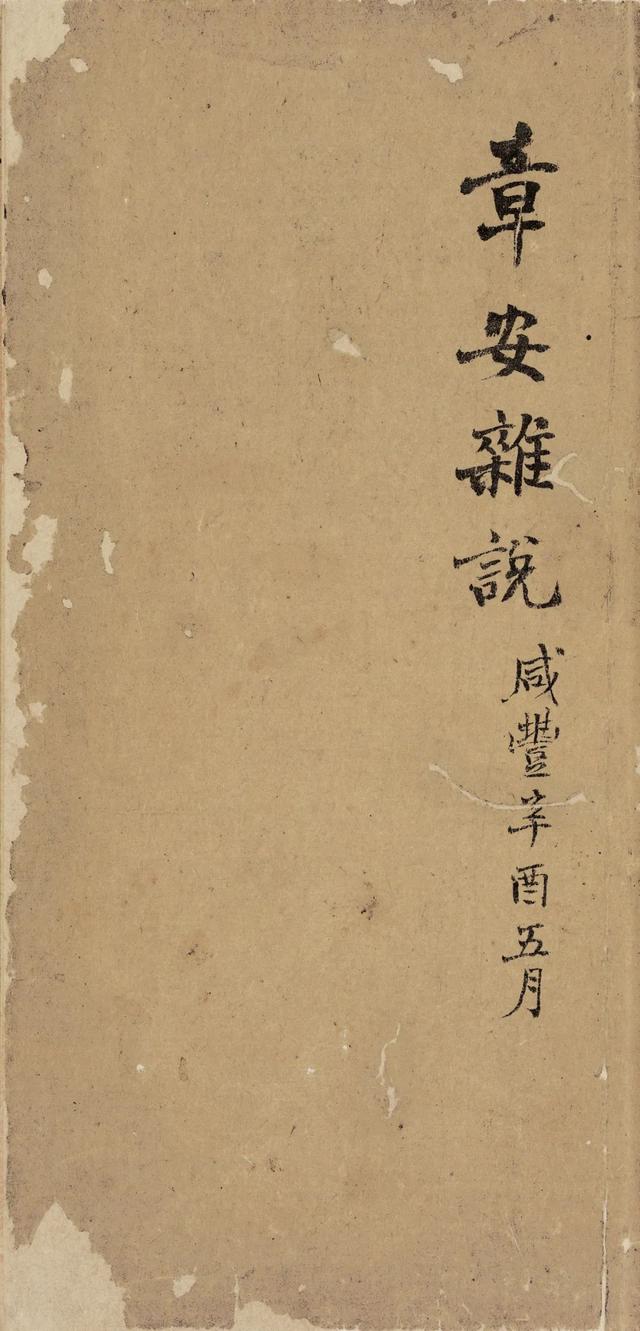 章安雜説
咸豐辛酉五月